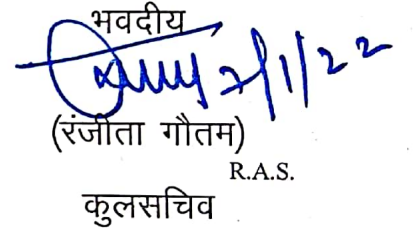 भवदीय
7/1/22
(रंजीता गौतम)
R.A.S.
कुलसचिव